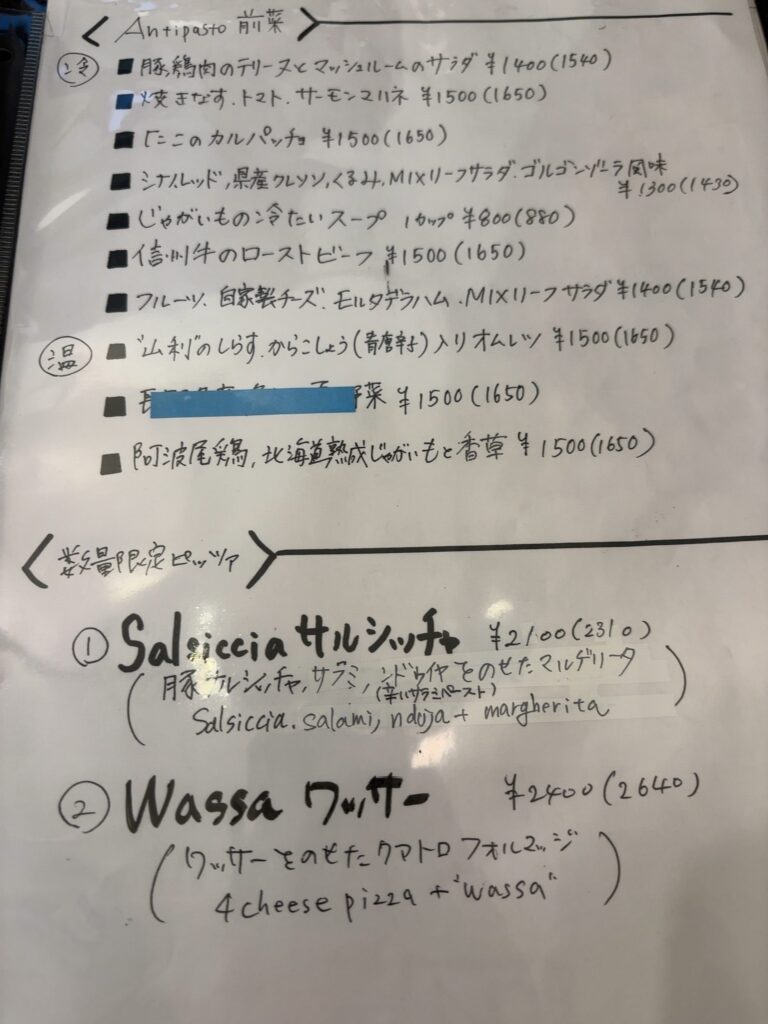 Antipasto 前菜
冷 ■ 豚、鶏肉のテリーヌとマッシュルームのサラダ ¥1400(1540)
■ 焼きなす、トマト、サーモンマリネ ¥1500(1650)
■ たこのカルパッチョ ¥1500(1650)
■ シナノレッド,県産クレソン,くるみ,MIXリーフサラダ.ゴルゴンゾーラ風味
¥1300(1430)
■ じゃがいもの冷たいスープ 1カップ ¥800(880)
■ 信州牛のローストビーフ ¥1500(1650)
■ フルーツ、自家製チーズ、モルタデラハム、MIXリーフサラダ ¥1400(1540)
温 ■ "山利"のしらす、からこしょう(青唐辛子)入りオムレツ ¥1500(1650)
■ 野菜 ¥1500(1650)
■ 阿波尾鶏,北海道熟成じゃがいもと香草 ¥1500(1650)
数量限定ピッツァ
① Salsiccia サルシッチャ ¥2100(2310)
(豚サルシッチャ,サラミ,ンドゥイヤをのせたマルゲリータ
(辛いサラミペースト)
Salsiccia. salami, nduja + margherita)
② Wassa ワッサー ¥2400(2640)
(ワッサーをのせたクアトロフォルマッジ
4cheese pizza + "wassa")